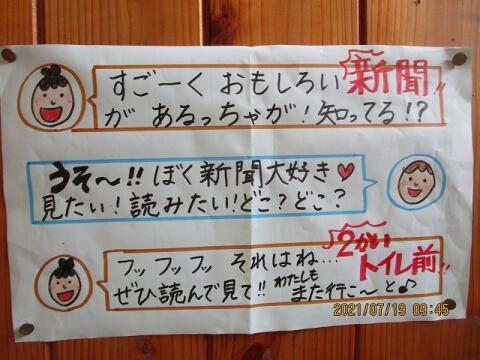 すごーく おもしろい 新聞!!
が あるっちゃが!知ってる!?
うそ〜!! ぼく新聞大好き♥
見たい!読みたい!どこ?どこ?
フッフッフッ それはね… 2かい
トイレ前!!
ぜひ読んで見て!! わたしも また行こ〜と♪
2021/07/19 09:45